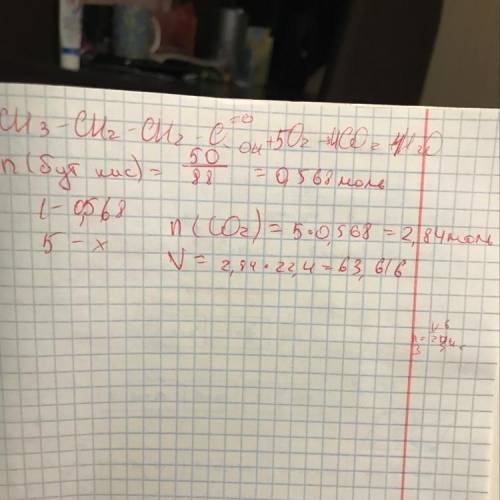 CH3-CH2-CH2-C=O OH+5O2→4CO2+4H2O
n(бут кис)= 50/88 = 0,568 моль
1-0,568
n(CO2)=5·0,568=2,84 моль
5-x
V= 2,84·22,4=63,616